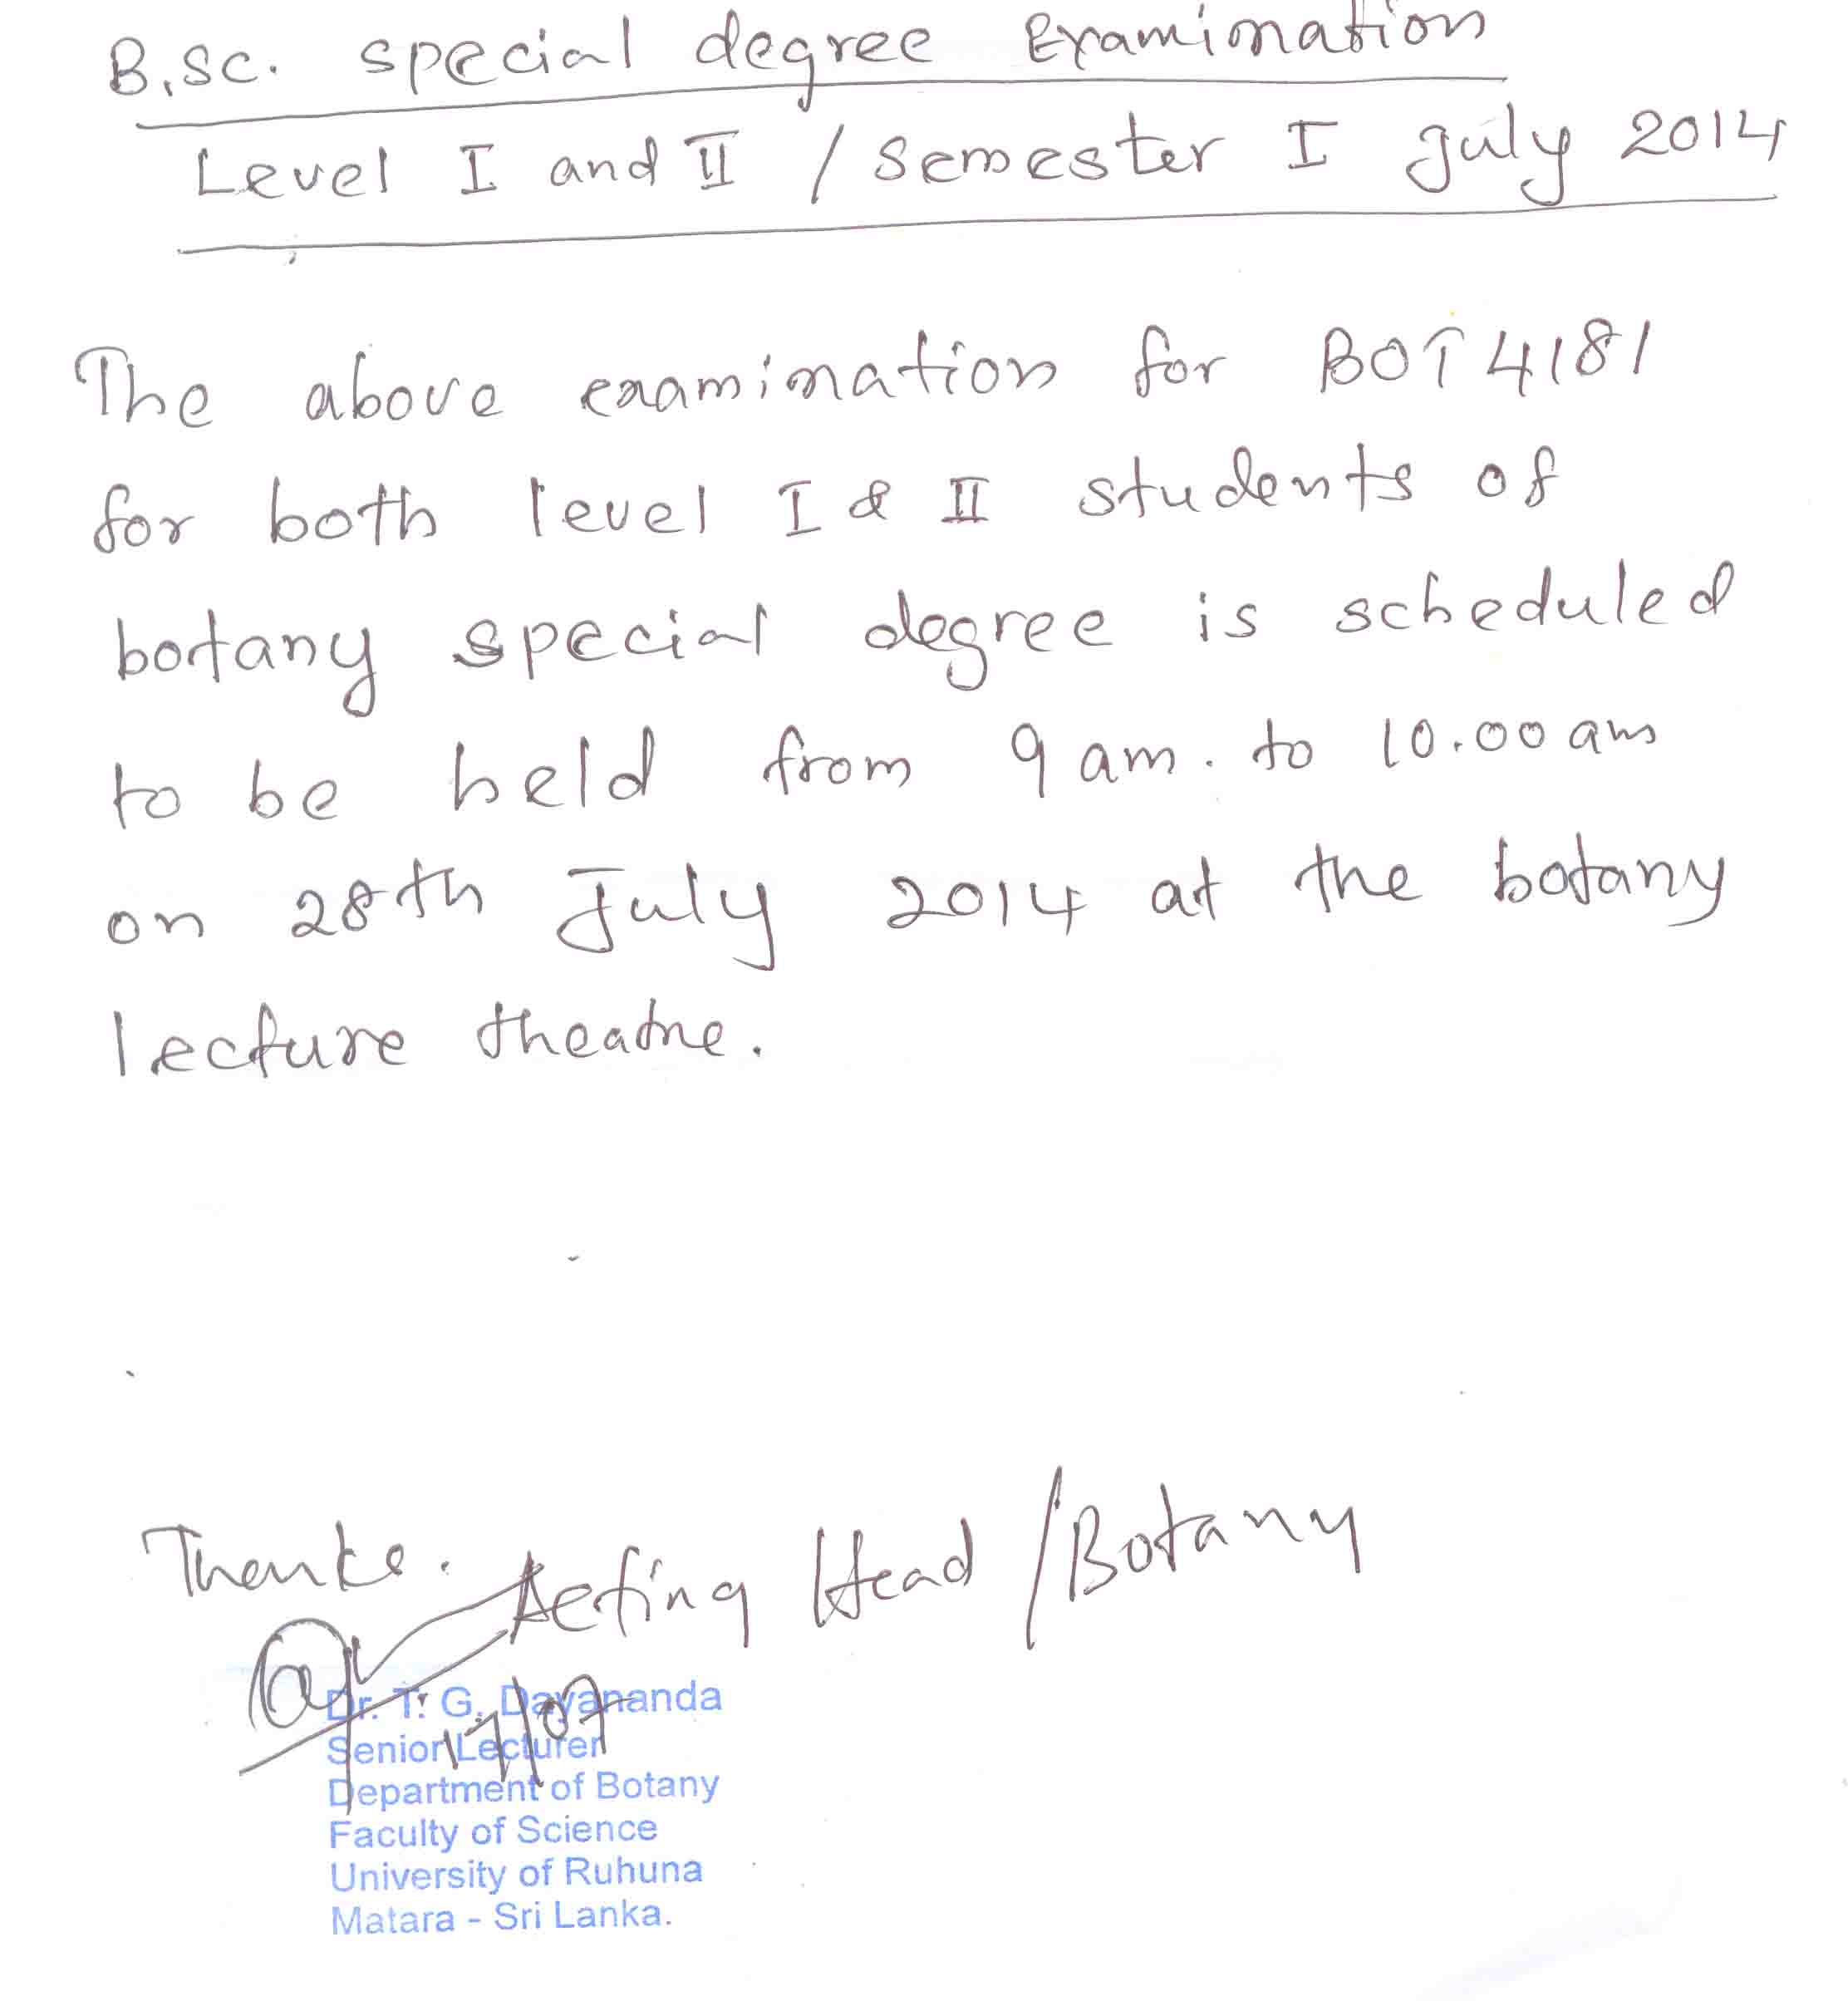 B.Sc. special degree Examination
Level I and II / Semester I July 2014
The above examination for BOT 4181
for both level I & II students of
botany special degree is scheduled
to be held from 9 am. to 10.00 am
on 28th July 2014 at the botany
lecture theatre.
Thanks.
Acting Head / Botany
17/07
Dr. T. G. Dayananda
Senior Lecturer
Department of Botany
Faculty of Science
University of Ruhuna
Matara - Sri Lanka.